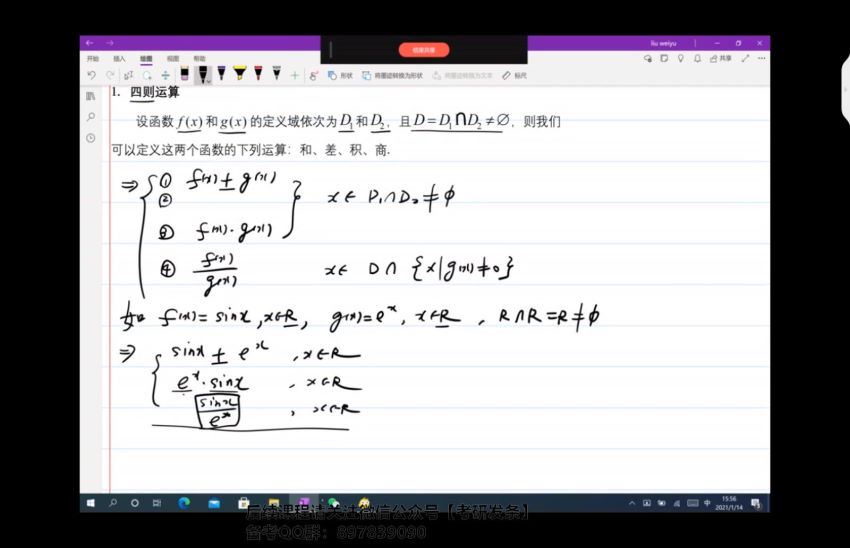 liu weiyu
结束共享
开始 插入 绘图 视图 帮助
共享
形状 将墨迹转换为形状 将墨迹转换为文本 标尺
1. 四则运算
设函数 f(x) 和 g(x) 的定义域依次为 D₁ 和 D₂, 且 D=D₁⋂D₂≠∅, 则我们
可以定义这两个函数的下列运算: 和、差、积、商.
⇒ ① f(x) ± g(x)
② x∈ D₁∩D₂≠∅
③ f(x)·g(x)
④ f(x)/g(x) x∈ D∩{x|g(x)≠0}
如 f(x)=sinx, x∈R, g(x)=eˣ, x∈R, R∩R=R≠∅
⇒ sinx ± eˣ , x∈R
eˣ·sinx , x∈R
sinx/eˣ , x∈R
中 15:56
2021/1/14
后续课程请关注微信公众号【考研发条】
备考QQ群: 897839090